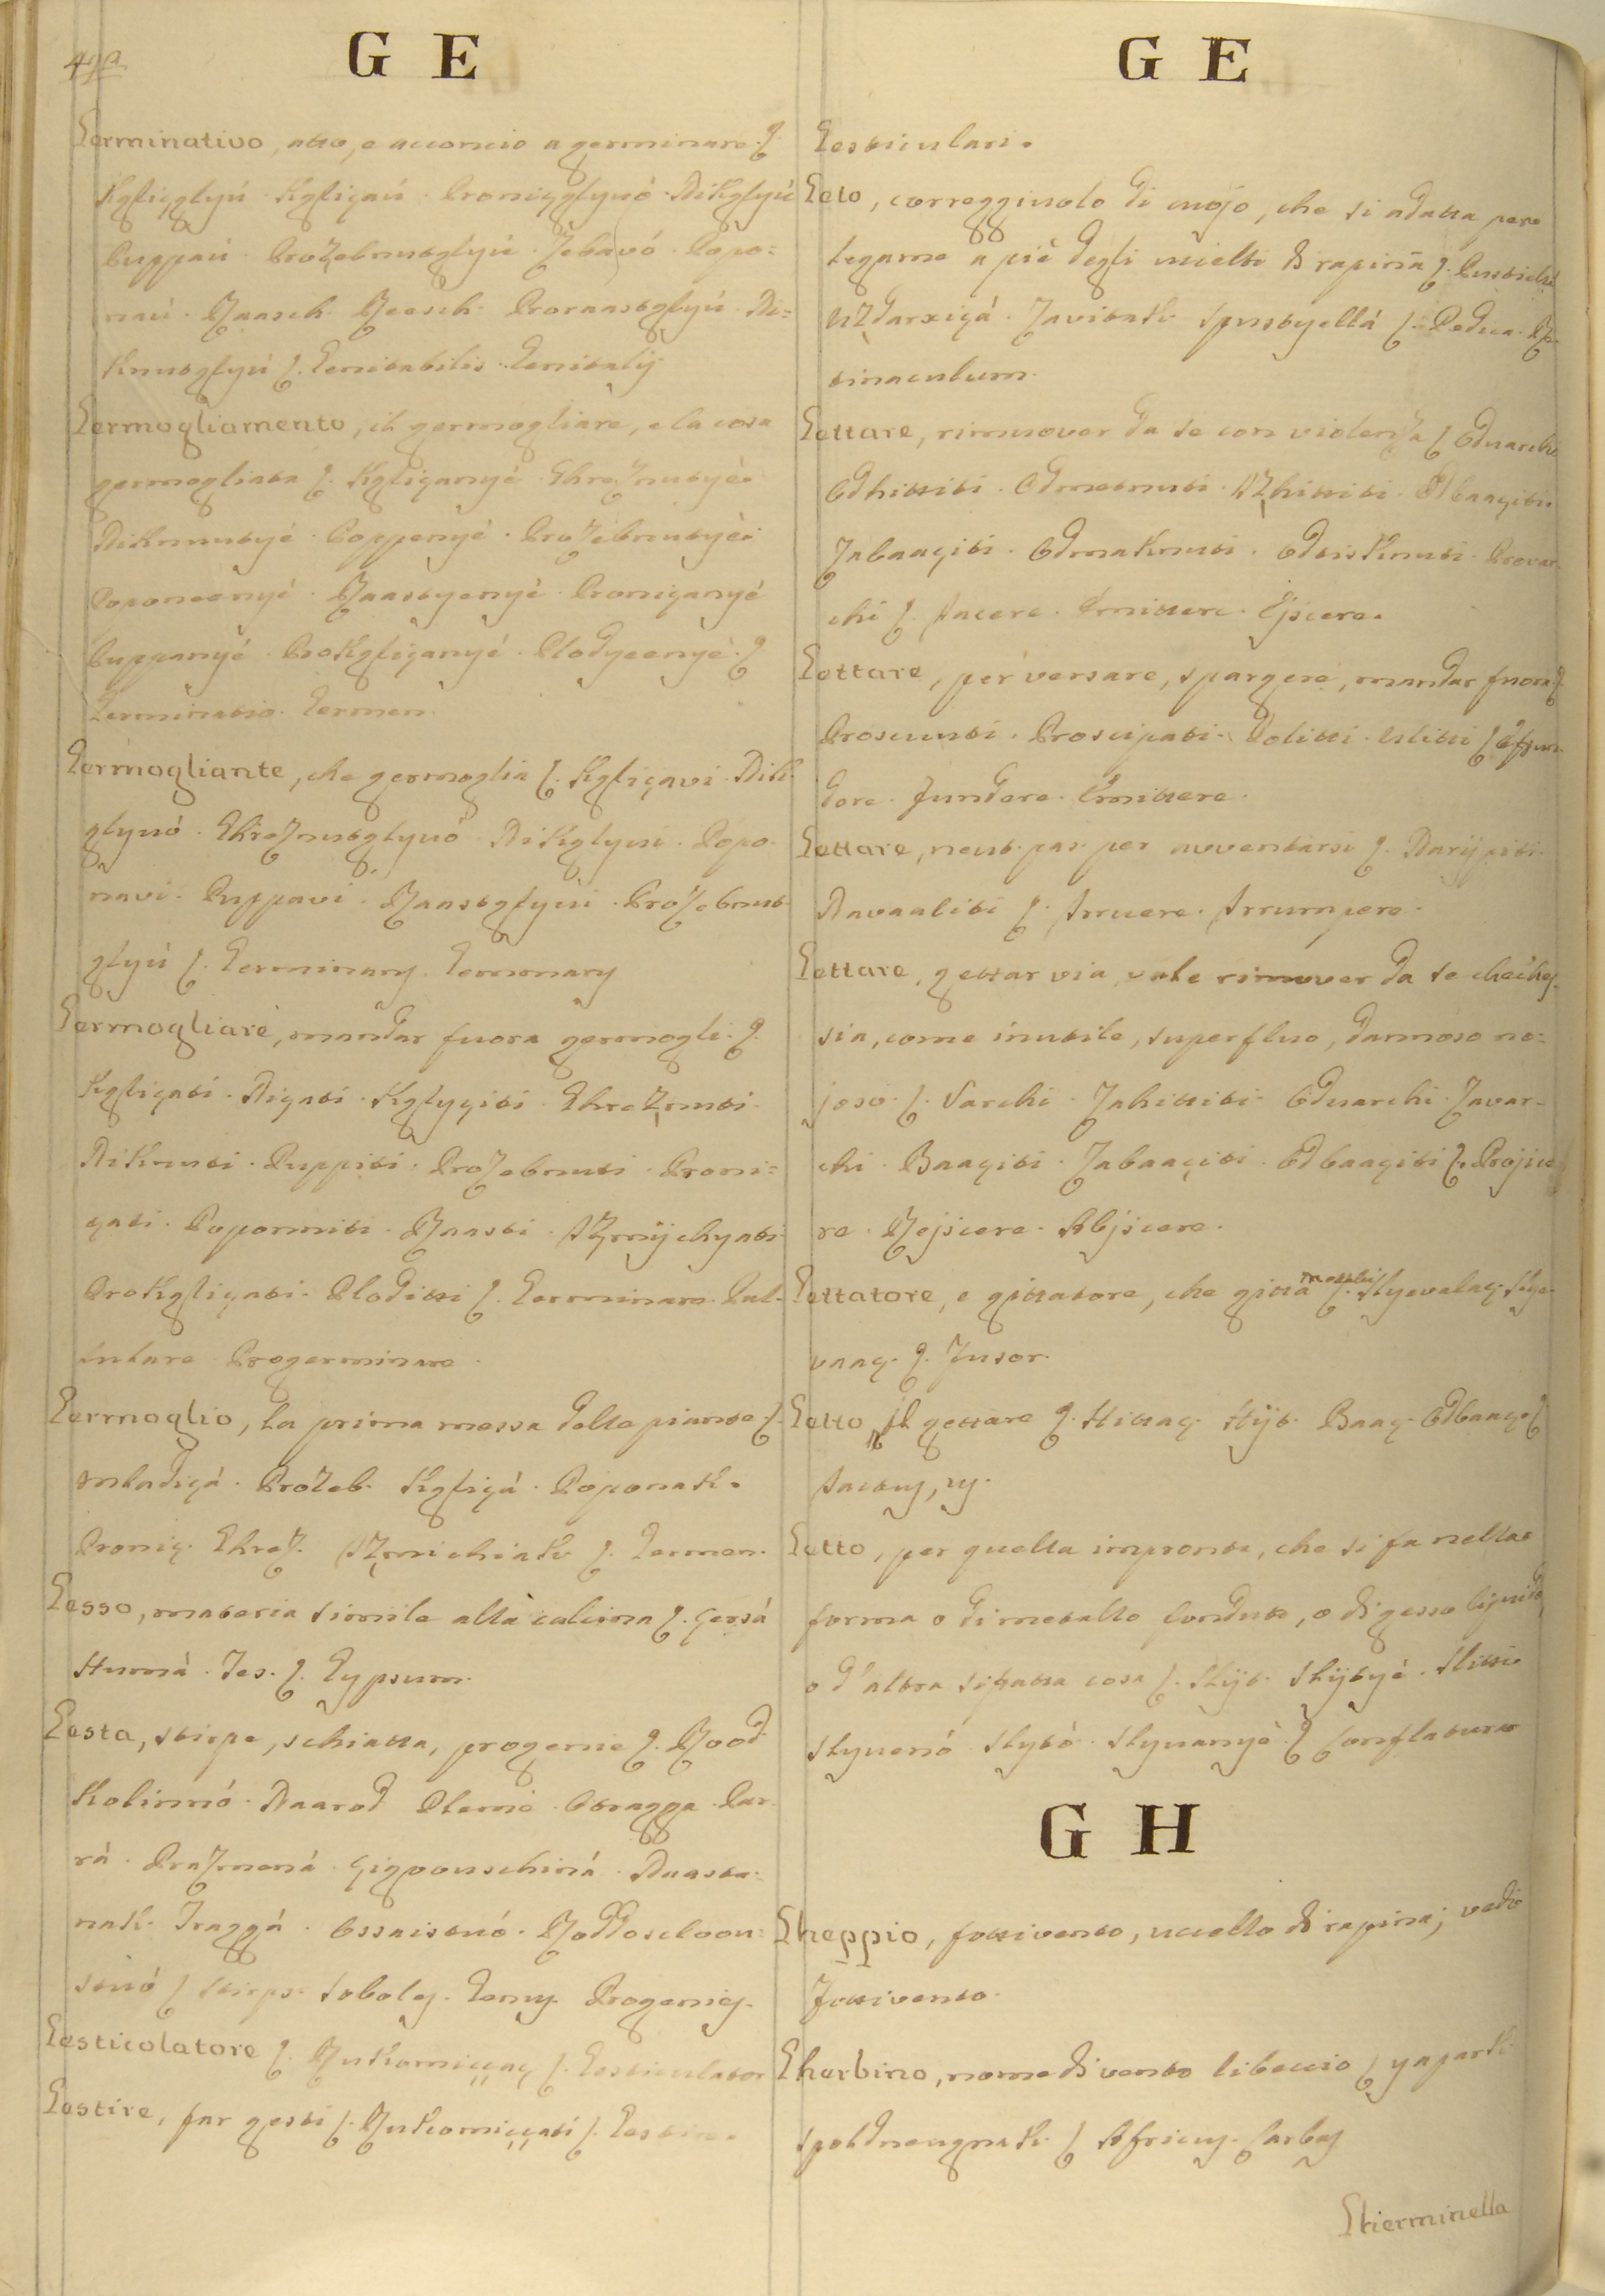 G E
Germinativo, atto, e acconcio a germinare. ſ.
Kgliçglyú. Kgliçaú. Proniçglyuó. Nikglyú
Puppaú. Prozebnutglyú. Zebavó. Popo=
naú. Raasch. Reesch. Poraastglyú. Ni=
knutglyú ſ. Genitabilis. Genitalis
Germogliamento, il germogliare, e la cosa
germogliata ſ. Kgliçanyé. Khreznutyé.
Niknnutyé. Poppenyé. Prozebnutyé.
Poponeenyé. Raastyenyé. Proniçanyé
Puppanyé. Prokgliçanyé. Plodyeenyé. ſ.
Germinatio. Germen.
Germogliante, che germoglia ſ. Kgliçavi. Nik
glyuó. Khreznutglyuó. Nikglyui. Popo-
navi. Puppavi. Raastglyui. Prozebnut-
glyú ſ. Germinans. Gemmans
Germogliare, mandar fuora germogli. ſ.
Kgliçati. Niçati. Kglyçiti. Khreznuti.
Niknuti. Puppiti. Prozebnuti. Proni=
çati. Poponniti. Raasti. Izmijchyati.
Prokgliçati. Ploditti ſ. Germinare. Pul-
lulare. Progerminare.
Germoglio, la prima messa delle piante ſ.
mladiçá. Prozeb. Kgliçá. Poponak.
Proniç. Khrez. Izmichiak ſ. Germen.
Gesso, materia simile alla calcina ſ. Gersá
Stumá. Jes. ſ. Gypsum.
Gesta, stirpe, schiatta, progenie ſ. Rood
Kolinnó. Naarod. Plemé. Otragga. Par-
rá. Prazmená. Gigvouschiná. Naasta-
nak. Traggá. Ossaistuó. Roddoscloou=
stuó ſ. Stirps. Soboles. Genus. Progenies.
Gesticolatore ſ. Rukomiççaç ſ. Gesticulator
Gestire, far gesti ſ. Rukomiççati ſ. Gestire.
G E
Gesticulari.
Geto, correggiuolo di cuojo, che si adatta pere
legame a piè degli uccelli di rapina ſ.
Uzdarxiçá. Zavitak. Spustyellá ſ. Pedica. Re-
tinaculum.
Gettare, rimuover da se con violenza ſ. Oduarchi
Odhittiti. Odmetnuti. Uzhittiti. Odbaaçiti.
Zabaaçiti. Odmaknuti. Odtisknuti. Provar-
chi ſ. Jacere. Emittere. Ejicere.
Gettare, per versare, spargere, mandar fuora ſ.
Proscuuti. Proscipati. Politti. Ulitti ſ. Effun-
dere. Fundere. Emittere.
Gettare, neut. pas. per avventarsi ſ. Narijpiti.
Navaaliti ſ. Irruere. Irrumpere.
Gettare, gettar via, vale rimover da se checches-
sia, come inutile, superfluo, dannoso no=
joso. ſ. Varchi. Zahittiti. Oduarchi. Zavar-
chi. Baaçiti. Zabaaçiti. Odbaaçiti ſ. Projice
re. Rejicere. Abjicere.
Gettatore, o gittatore, che gitta metalli ſ. Slyevalaç. Slye-
vaaç. ſ. Fusor.
Getto, il gettare ſ. Hittaç. Hijt. Baaç. Odbaaç. ſ
Jactus, us.
Getto, per quella impronta, che si fa nella
forma o di metallo fonduto, o di gesso liquido
o d'altra sifatta cosa ſ. Slijt. Slijtyé. Slitti
Slyuenó. Slytó. Slyuanyé. ſ Conflatura
G H
Gheppio, fottivento, uccello di rapina; vedi
Fottivento.
Gherbino, nome di vento libeccio ſ yapark
spoldneugnak ſ Africus. Carbas
Ghierminella